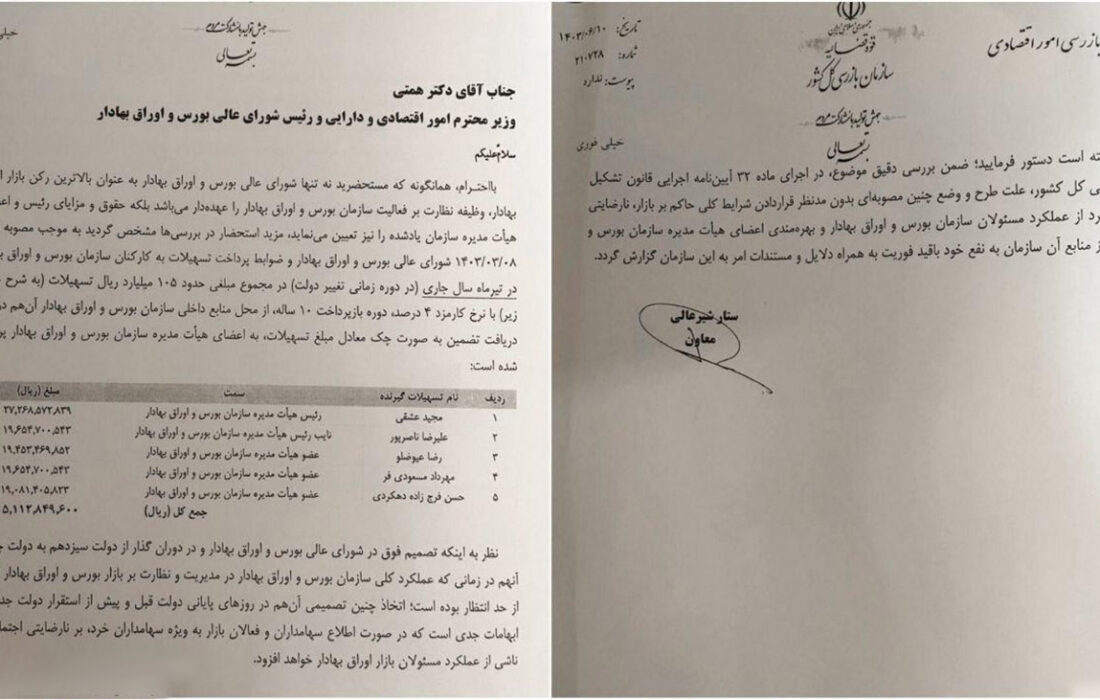 خیلی
جهش تولید با مشارکت مردم
بسمه تعالی
جناب آقای دکتر همتی
وزیر محترم امور اقتصادی و دارایی و رئیس شورای عالی بورس و اوراق بهادار
سلام علیکم
بااحترام، همانگونه که مستحضرید نه تنها شورای عالی بورس و اوراق بهادار به عنوان بالاترین رکن بازار
بهادار، وظیفه نظارت بر فعالیت سازمان بورس و اوراق بهادار را عهده‌دار می‌باشد بلکه حقوق و مزایای رئیس و
هیأت مدیره سازمان یادشده را نیز تعیین می‌نماید، مزید استحضار در بررسی‌ها مشخص گردید به موجب مصوبه
۱۴۰۳/۰۳/۰۸ شورای عالی بورس و اوراق بهادار و ضوابط پرداخت تسهیلات به کارکنان سازمان بورس و اوراق
در تیرماه سال جاری (در دوره زمانی تغییر دولت) در مجموع مبلغی حدود ۱۰۵ میلیارد ریال تسهیلات (به شرح
زیر) با نرخ کارمزد ۴ درصد، دوره بازپرداخت ۱۰ ساله، از محل منابع داخلی سازمان بورس و اوراق بهادار آن‌هم
دریافت تضمین به صورت چک معادل مبلغ تسهیلات، به اعضای هیأت مدیره سازمان بورس و اوراق بهادار
شده است:
ردیف نام تسهیلات گیرنده سمت مبلغ (ریال)
۱ مجید عشقی رئیس هیأت مدیره سازمان بورس و اوراق بهادار ۲۷,۲۶۸,۵۷۲,۸۳۹
۲ علیرضا ناصرپور نایب رئیس هیأت مدیره سازمان بورس و اوراق بهادار ۱۹,۶۵۴,۷۰۰,۵۴۳
۳ رضا عیوضلو عضو هیأت مدیره سازمان بورس و اوراق بهادار ۱۹,۴۵۳,۴۶۹,۸۵۲
۴ مهرداد مسعودی فر عضو هیأت مدیره سازمان بورس و اوراق بهادار ۱۹,۶۵۴,۷۰۰,۵۴۳
۵ حسن فرج زاده دهکردی عضو هیأت مدیره سازمان بورس و اوراق بهادار ۱۹,۰۸۱,۴۰۵,۸۲۳
جمع کل (ریال) ۵,۱۱۲,۸۴۹,۶۰۰
نظر به اینکه تصمیم فوق در شورای عالی بورس و اوراق بهادار و در دوران گذار از دولت سیزدهم به دولت
آنهم در زمانی که عملکرد کلی سازمان بورس و اوراق بهادار در مدیریت و نظارت بر بازار بورس و اوراق بهادار
از حد انتظار بوده است؛ اتخاذ چنین تصمیمی آن‌هم در روزهای پایانی دولت قبل و پیش از استقرار دولت
ابهامات جدی است که در صورت اطلاع سهامداران و فعالان بازار به ویژه سهامداران خرد، بر نارضایتی
ناشی از عملکرد مسئولان بازار اوراق بهادار خواهد افزود.
بازرسی امور اقتصادی
جمهوری اسلامی ایران
قوه قضاییه
سازمان بازرسی کل کشور
تاریخ: ۱۴۰۳/۰۶/۱۰
شماره: ۲۱۰۷۲۸
پیوست: ندارد
جهش تولید با مشارکت مردم
بسمه تعالی
خیلی فوری
است دستور فرمایید؛ ضمن بررسی دقیق موضوع، در اجرای ماده ۳۲ آیین‌نامه اجرایی قانون تشکیل
کل کشور، علت طرح و وضع چنین مصوبه‌ای بدون مدنظر قراردادن شرایط کلی حاکم بر بازار، نارضایتی
از عملکرد مسئولان سازمان بورس و اوراق بهادار و بهره‌مندی اعضای هیأت مدیره سازمان بورس و
از منابع آن سازمان به نفع خود باقید فوریت به همراه دلایل و مستندات امر به این سازمان گزارش گردد.
ستار شیرعالی
معاون